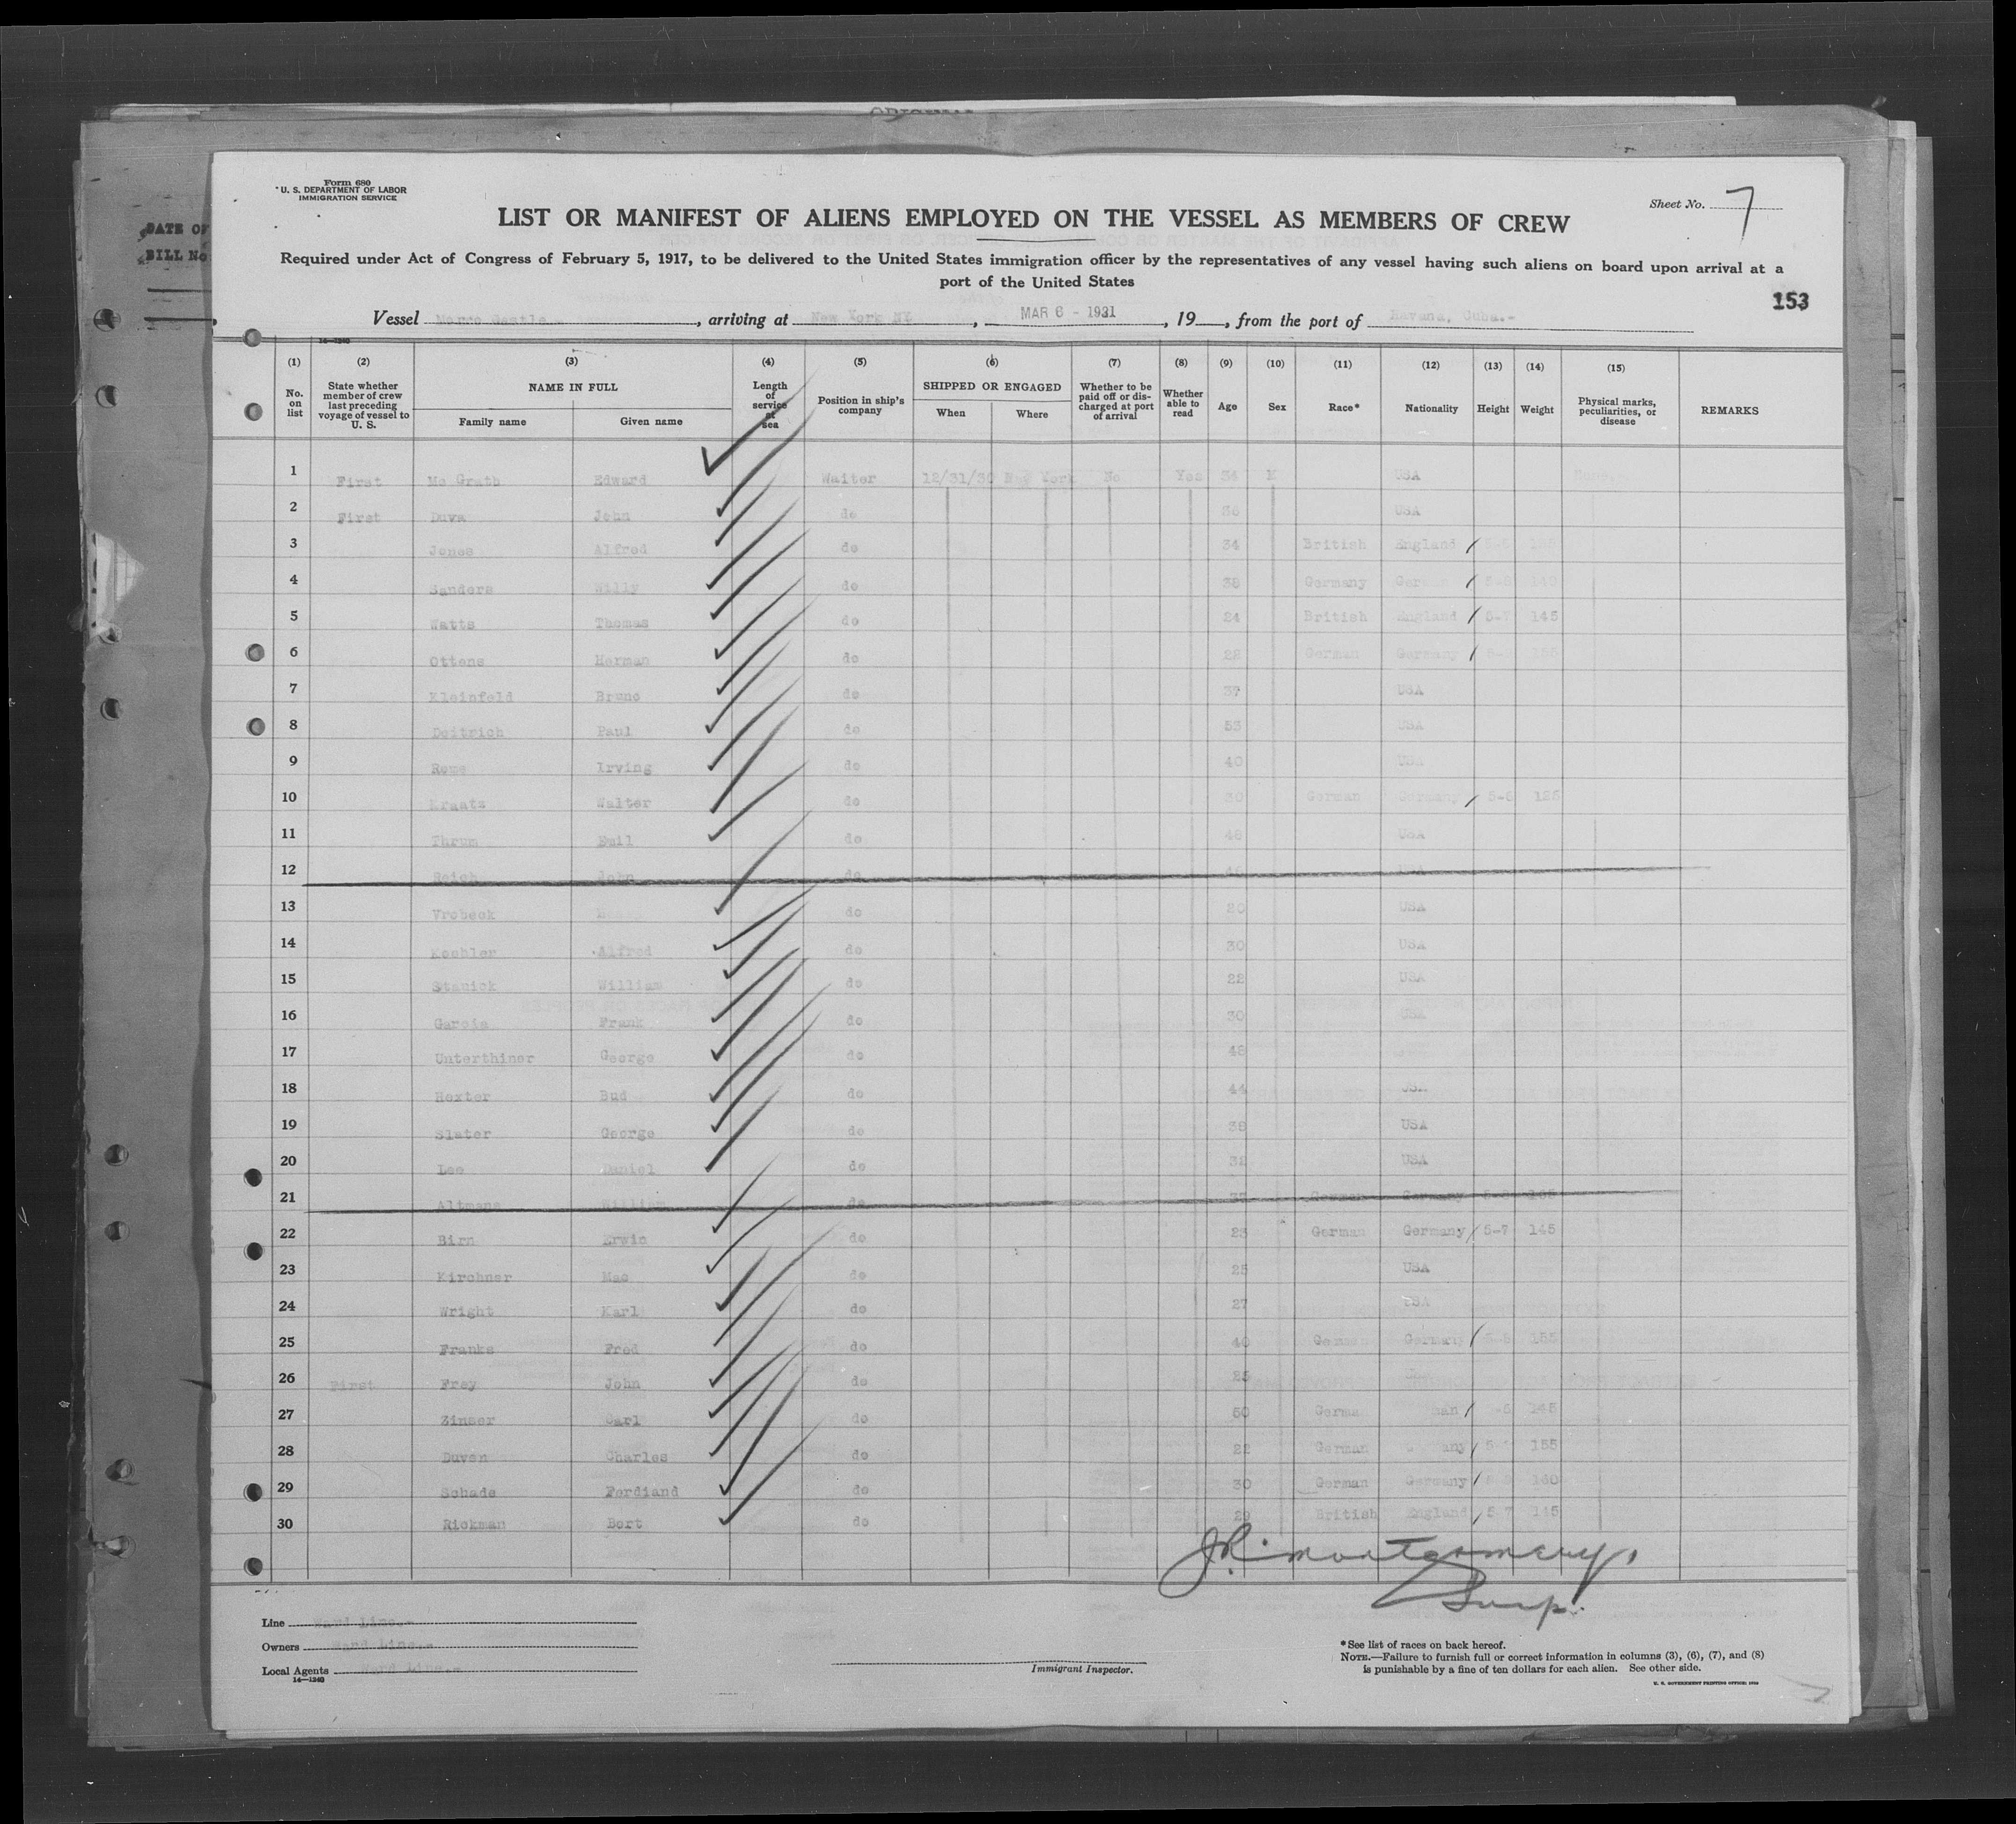 DATE OF
BILL No
Form 680
U. S. DEPARTMENT OF LABOR
IMMIGRATION SERVICE
Sheet No. 7
LIST OR MANIFEST OF ALIENS EMPLOYED ON THE VESSEL AS MEMBERS OF CREW
Required under Act of Congress of February 5, 1917, to be delivered to the United States immigration officer by the representatives of any vessel having such aliens on board upon arrival at a
port of the United States
153
Vessel Morro Castle.-, arriving at New York NY, MAR 6 - 1931, 19 , from the port of Havana, Cuba.-
14—1240
(1) (2) (3) (4) (5) (6) (7) (8) (9) (10) (11) (12) (13) (14) (15)
No. on list State whether member of crew last preceding voyage of vessel to U. S. NAME IN FULL Family name Given name Length of service at sea Position in ship's company SHIPPED OR ENGAGED When Where Whether to be paid off or discharged at port of arrival Whether able to read Age Sex Race* Nationality Height Weight Physical marks, peculiarities, or disease REMARKS
1 First Mc Grath Edward Waiter 12/31/30 New York No Yes 34 M USA None
2 First Duva John do 38 USA
3 Jones Alfred do 34 British England
4 Sanders Willy do 38 Germany German 5-8 140
5 Watts Thomas do 24 British England 5-7 145
6 Ottens Herman do 22 German Germany 155
7 Kleinfeld Bruno do 37 USA
8 Deitrich Paul do 53 USA
9 Rowe Irving do 40 USA
10 Kraatz Walter do 30 German Germany 5-8 125
11 Thrum Emil do 48 USA
12 Reich John do USA
13 Vrobeck do 20 USA
14 Koehler Alfred do 30 USA
15 Stauick William do 22 USA
16 Garcia Frank do 30 USA
17 Unterthiner George do 48
18 Hexter Bud do 44 USA
19 Slater George do 38 USA
20 Lee Daniel do 32 USA
21 Altmans William do 37 German Germany
22 Birn Erwin do 23 German Germany 5-7 145
23 Kirchner Mac do 25 USA
24 Wright Karl do 27 USA
25 Franke Fred do 40 German Germany 155
26 First Frey John do 25
27 Zinser Carl do 50 German 145
28 Duven Charles do 22 German Germany 155
29 Schade Ferdiand do 30 German Germany 160
30 Rickman Bert do 29 British England 5-7 145
J.R. Montgomery,
Surp.
Line Ward Line.-
Owners Ward Line.-
Local Agents Ward Line.-
14—1240
Immigrant Inspector.
*See list of races on back hereof.
NOTE.—Failure to furnish full or correct information in columns (3), (6), (7), and (8)
is punishable by a fine of ten dollars for each alien. See other side.
U. S. GOVERNMENT PRINTING OFFICE: 1930